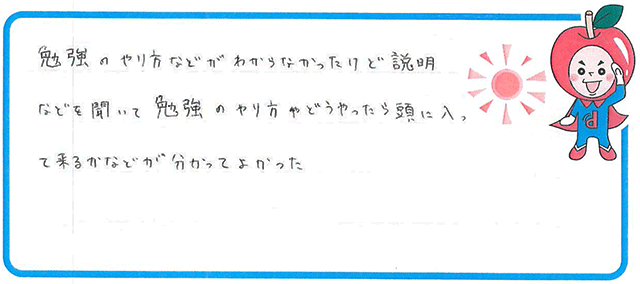 勉強のやり方などがわからなかったけど説明
などを聞いて勉強のやり方やどうやったら頭に入っ
て来るかなどが分かってよかった